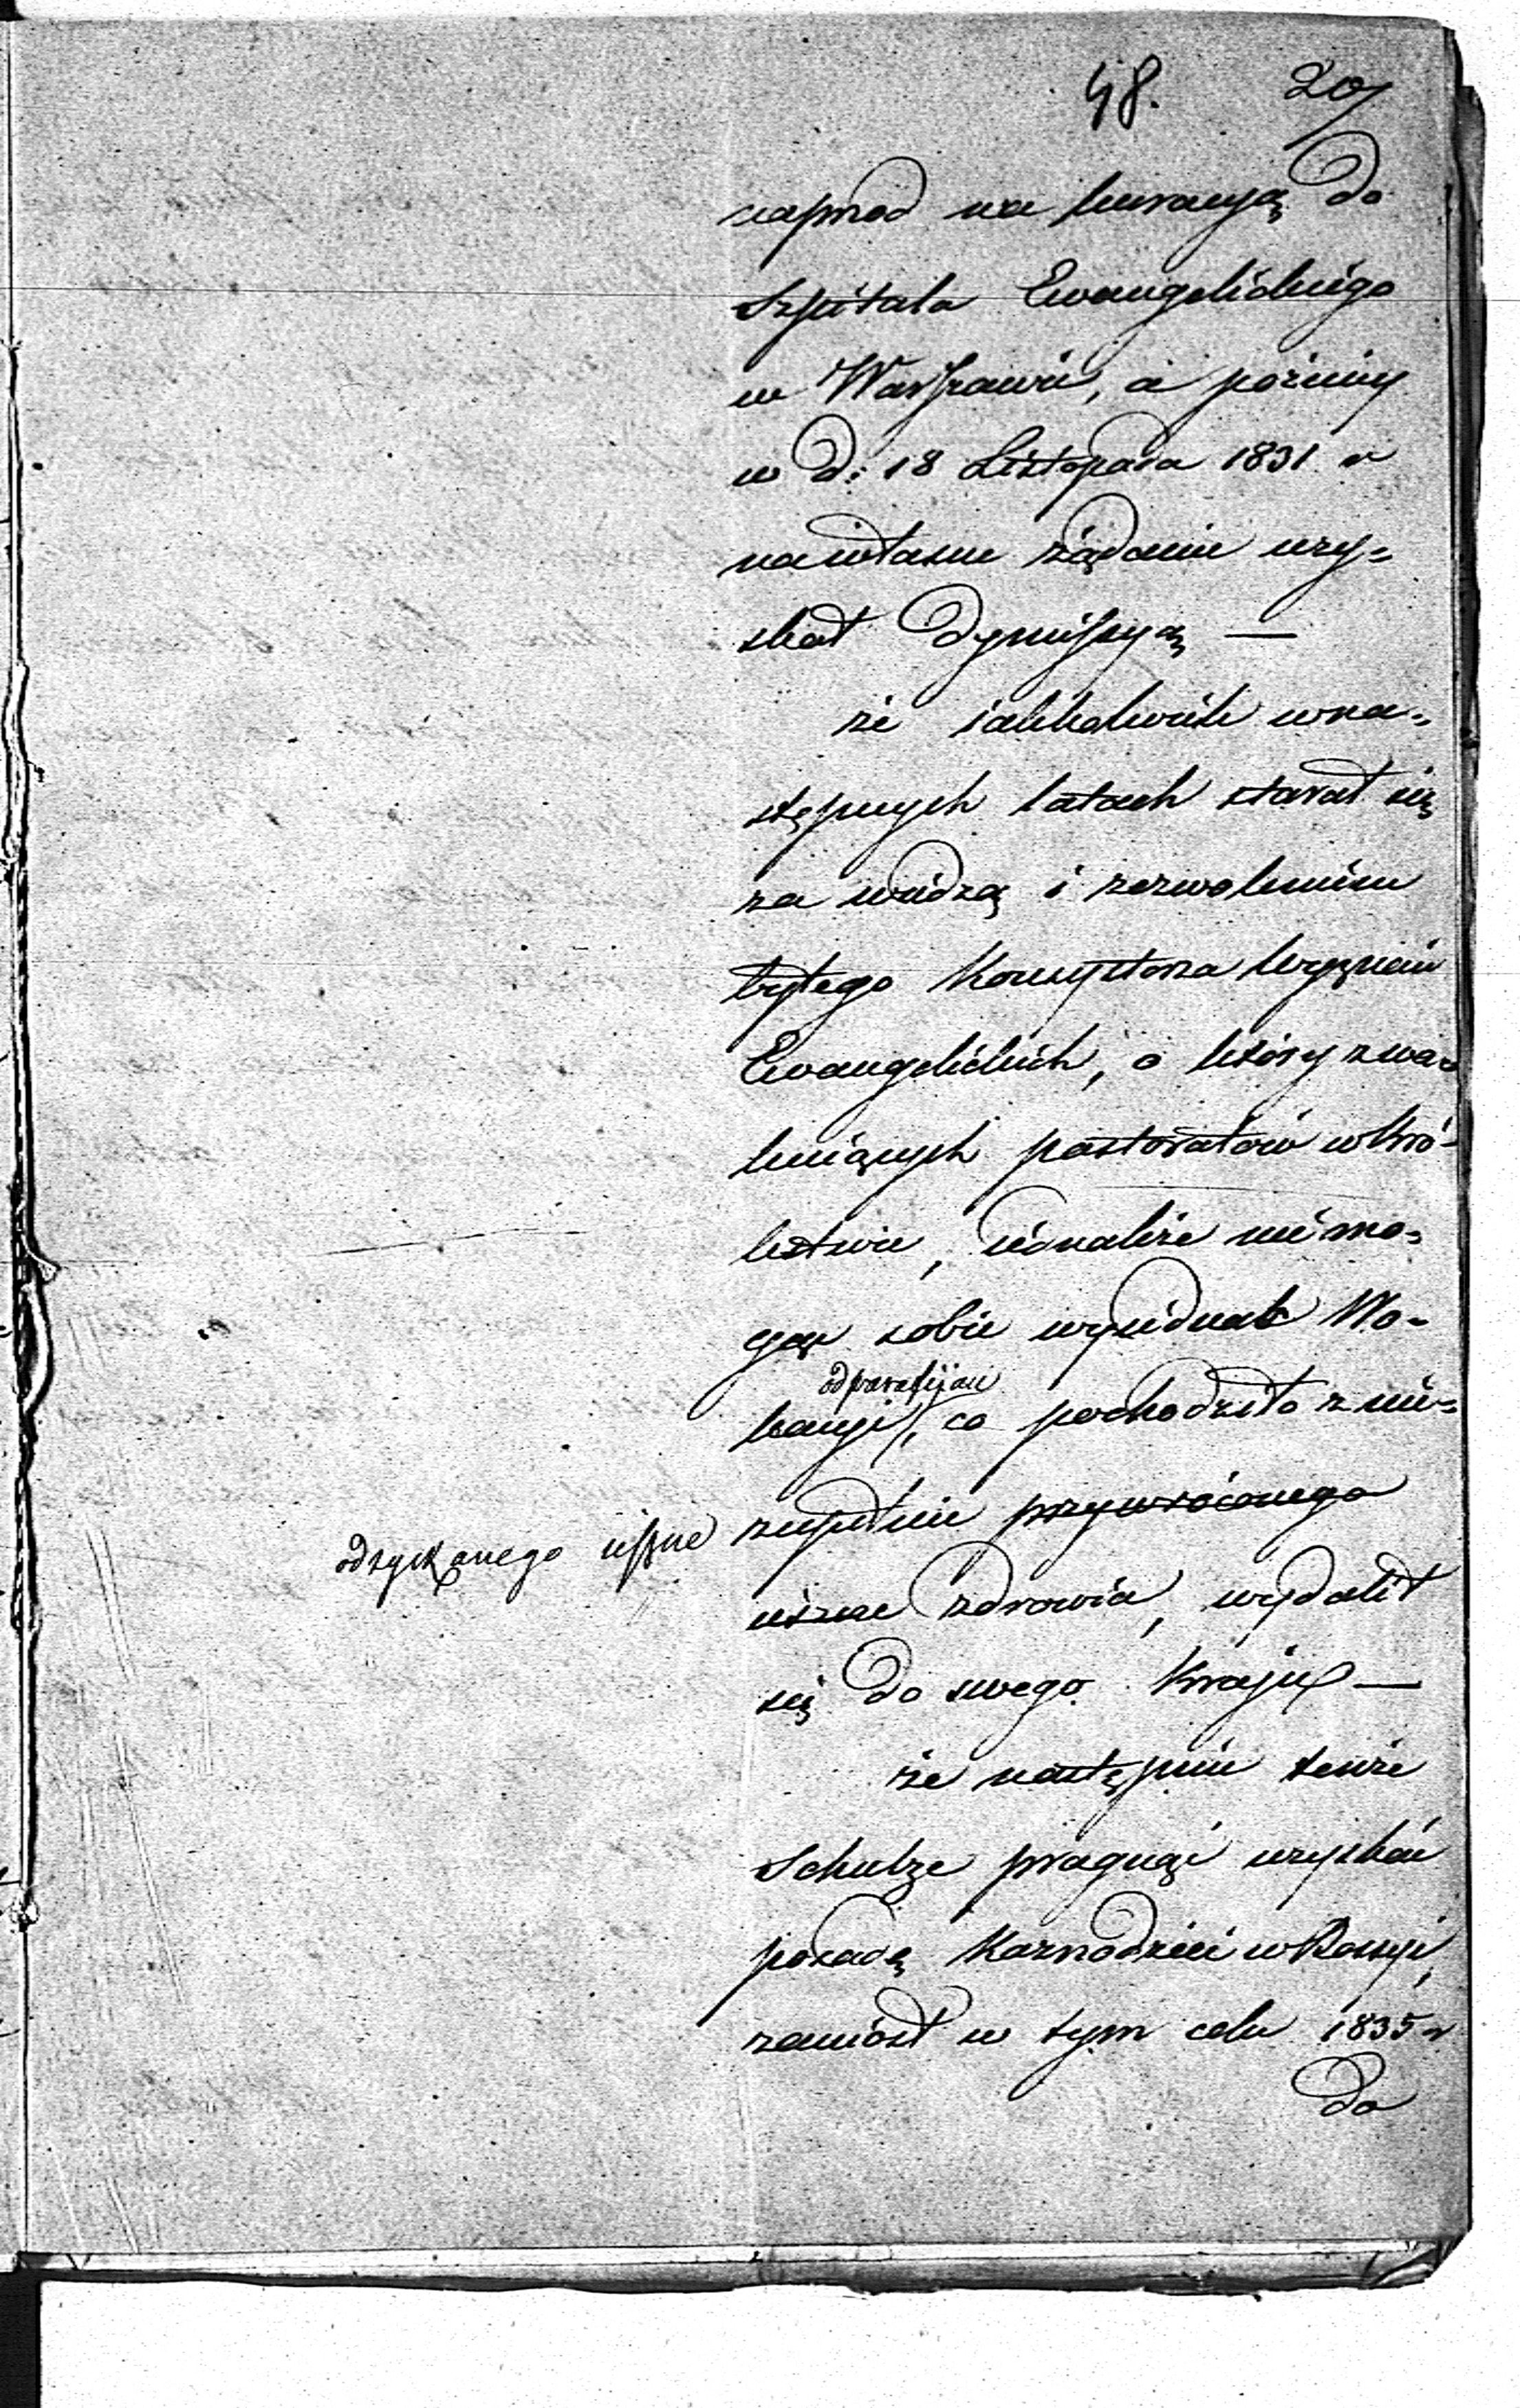 48. 20
naprzod na kuracyą do
Szpitala Ewangelickiego
w Warszawie, a pozniey
w d: 18 Listopada 1831 r
na własne żądanie uzy=
skał dymissyą —
że iakkolwiek w na=
stępnych latach starał się
za wiedzą i zezwoleniem
byłego Konsystorza Wyznań
Ewangelickich, o który z wa=
kuiących pastoratów w Kró=
lestwie, iednakże nie mo=
gąc sobie wyiednać Wo=
od parafijan
kacyi, co pochodziło z nie=
zupełnie przywróconego
odzyskanego ieszcze
ieszcze zdrowia, wydalił
się do swego Kraju —
że następnie tenże
Schultze pragnąc uzyskać
posadę Kaznodziei w Rossyi,
zaniósł w tym celu 1835 r
do